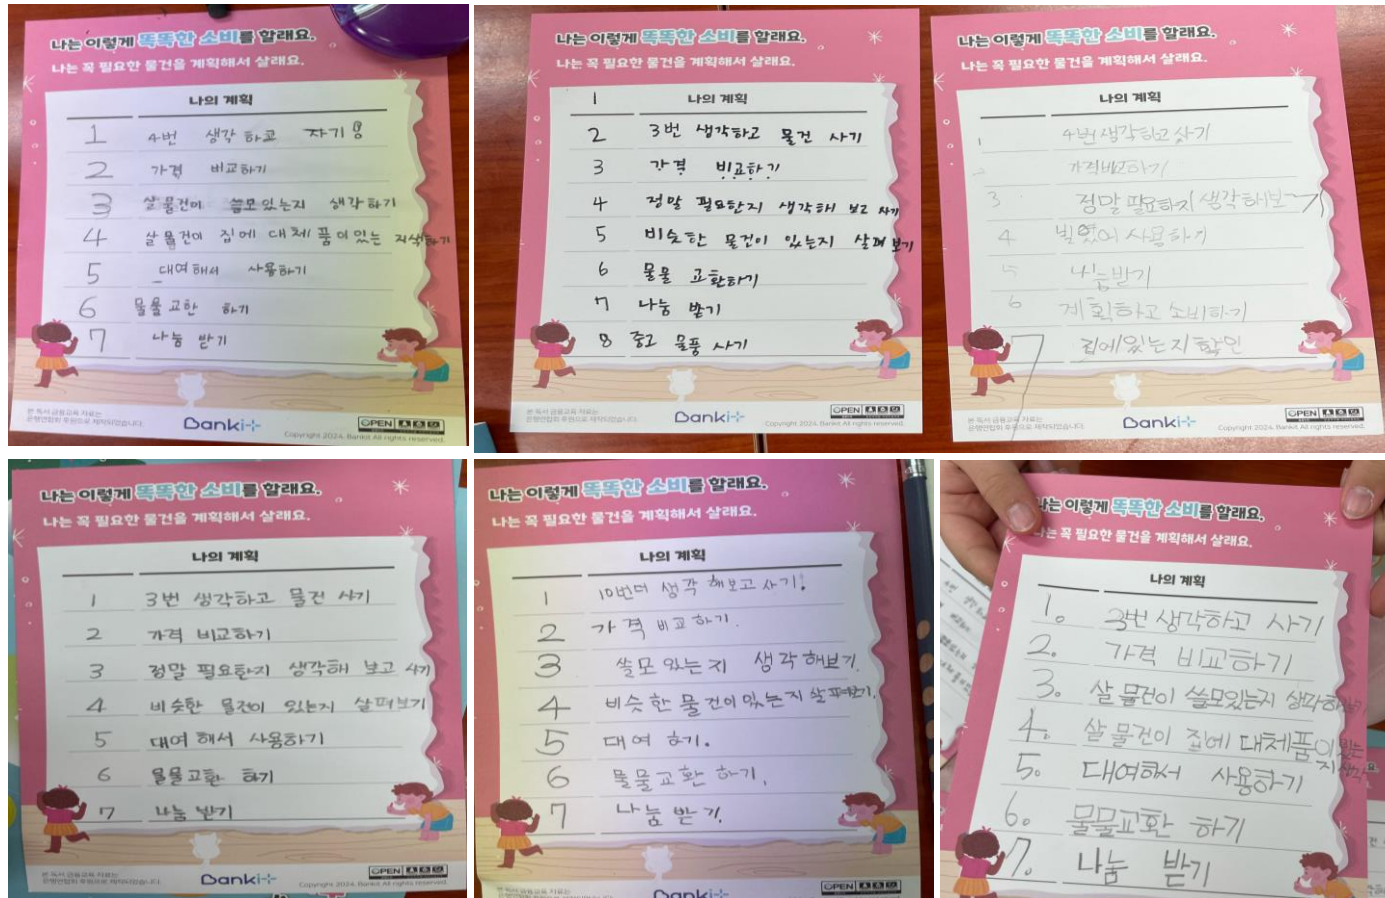 나는 이렇게 똑똑한 소비를 할래요.
나는 꼭 필요한 물건을 계획해서 살래요.
나의 계획
1 4번 생각 하고 자기
2 가격 비교하기
3 살 물건이 쓸모있는지 생각하기
4 살 물건이 집에 대체 품이있는 지색하기
5 대여해서 사용하기
6 물물교환 하기
7 나눔 받기
본 독서 금융교육 자료는
은행연합회 후원으로 제작되었습니다.
Banki
OPEN
Copyright 2024. Bankit All rights reserved.
나는 이렇게 똑똑한 소비를 할래요.
나는 꼭 필요한 물건을 계획해서 살래요.
1 나의 계획
2 3번 생각하고 물건 사기
3 가격 비교하기
4 정말 필요한지 생각해 보고 사기
5 비슷한 물건이 있는지 살펴보기
6 물물 교환하기
7 나눔 받기
8 중고 물풍 사기
본 독서 금융교육 자료는
은행연합회 후원으로 제작되었습니다.
Banki
OPEN
Copyright 2024. Bankit All rights reserved.
나는 이렇게 똑똑한 소비를 할래요.
나는 꼭 필요한 물건을 계획해서 살래요.
나의 계획
1 4번 생각하고 사기
2 가격비교하기
3 정말 필요하지 생각해보
4 빌렸어 사용하기
5 나눔받기
6 계획하고 소비하기
7 집에있는지 확인
본 독서 금융교육 자료는
은행연합회 후원으로 제작되었습니다.
Banki
OPEN
Copyright 2024. Bankit All rights reserved.
나는 이렇게 똑똑한 소비를 할래요.
나는 꼭 필요한 물건을 계획해서 살래요.
나의 계획
1 3번 생각하고 물건 사기
2 가격 비교하기
3 정말 필요한지 생각해 보고 사기
4 비슷한 물건이 있는지 살펴보기
5 대여해서 사용하기
6 물물교환 하기
7 나눔 받기
본 독서 금융교육 자료는
은행연합회 후원으로 제작되었습니다.
Banki
OPEN
Copyright 2024. Bankit All rights reserved.
나는 이렇게 똑똑한 소비를 할래요.
나는 꼭 필요한 물건을 계획해서 살래요.
나의 계획
1 10번더 생각 해보고 사기!
2 가격 비교하기.
3 쓸모있는지 생각해보기.
4 비슷한 물건이있는지 살펴보기.
5 대여 하기.
6 물물교환 하기.
7 나눔 받기.
본 독서 금융교육 자료는
Banki
OPEN
나는 이렇게 똑똑한 소비를 할래요.
나는 꼭 필요한 물건을 계획해서 살래요.
나의 계획
1. 3번 생각하고 사기
2. 가격 비교하기
3. 살 물건이 쓸모있는지 생각하
4. 살 물건이 집에 대체품이있는
지 생각
5. 대여해서 사용하기
6. 물물교환 하기
7. 나눔 받기